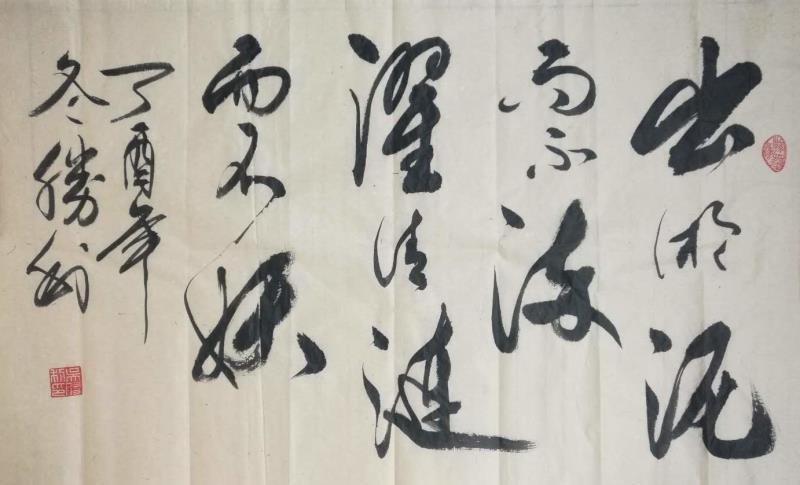 出淤泥
而不染
濯清涟
而不妖
丁酉年
冬勝利